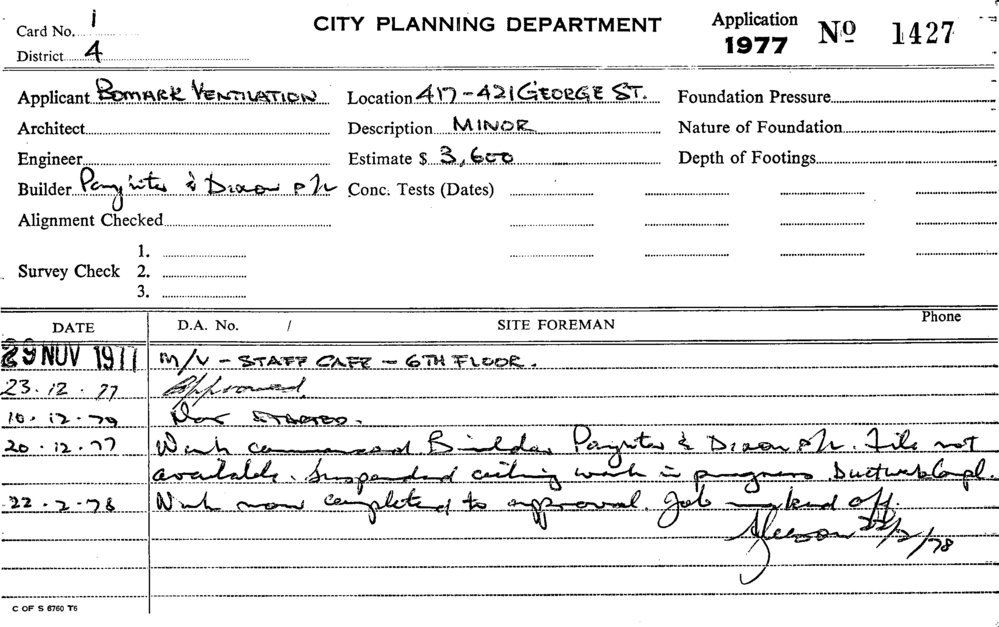 Card No. 1 CITY PLANNING DEPARTMENT Application Nº 1427
District 4 1977
Applicant BOMARK VENTILATION Location 417-421 GEORGE ST. Foundation Pressure
Architect Description MINOR Nature of Foundation
Engineer Estimate $ 3,600 Depth of Footings
Builder Paynter & Dixon P/L Conc. Tests (Dates)
Alignment Checked
1.
Survey Check 2.
3.
DATE D.A. No. / SITE FOREMAN Phone
29 NOV 1977 M/V - STAFF CAFE - 6TH FLOOR.
23.12.77 Approved.
10.12.79 Not STARTED.
20.12.77 Work commenced Builder Paynter & Dixon P/L. File not
available. Suspended ceiling work in progress. Ductwork Compl.
22.2.78 Work now completed to approval. Job marked off.
22/2/78
C OF S 6760 T6